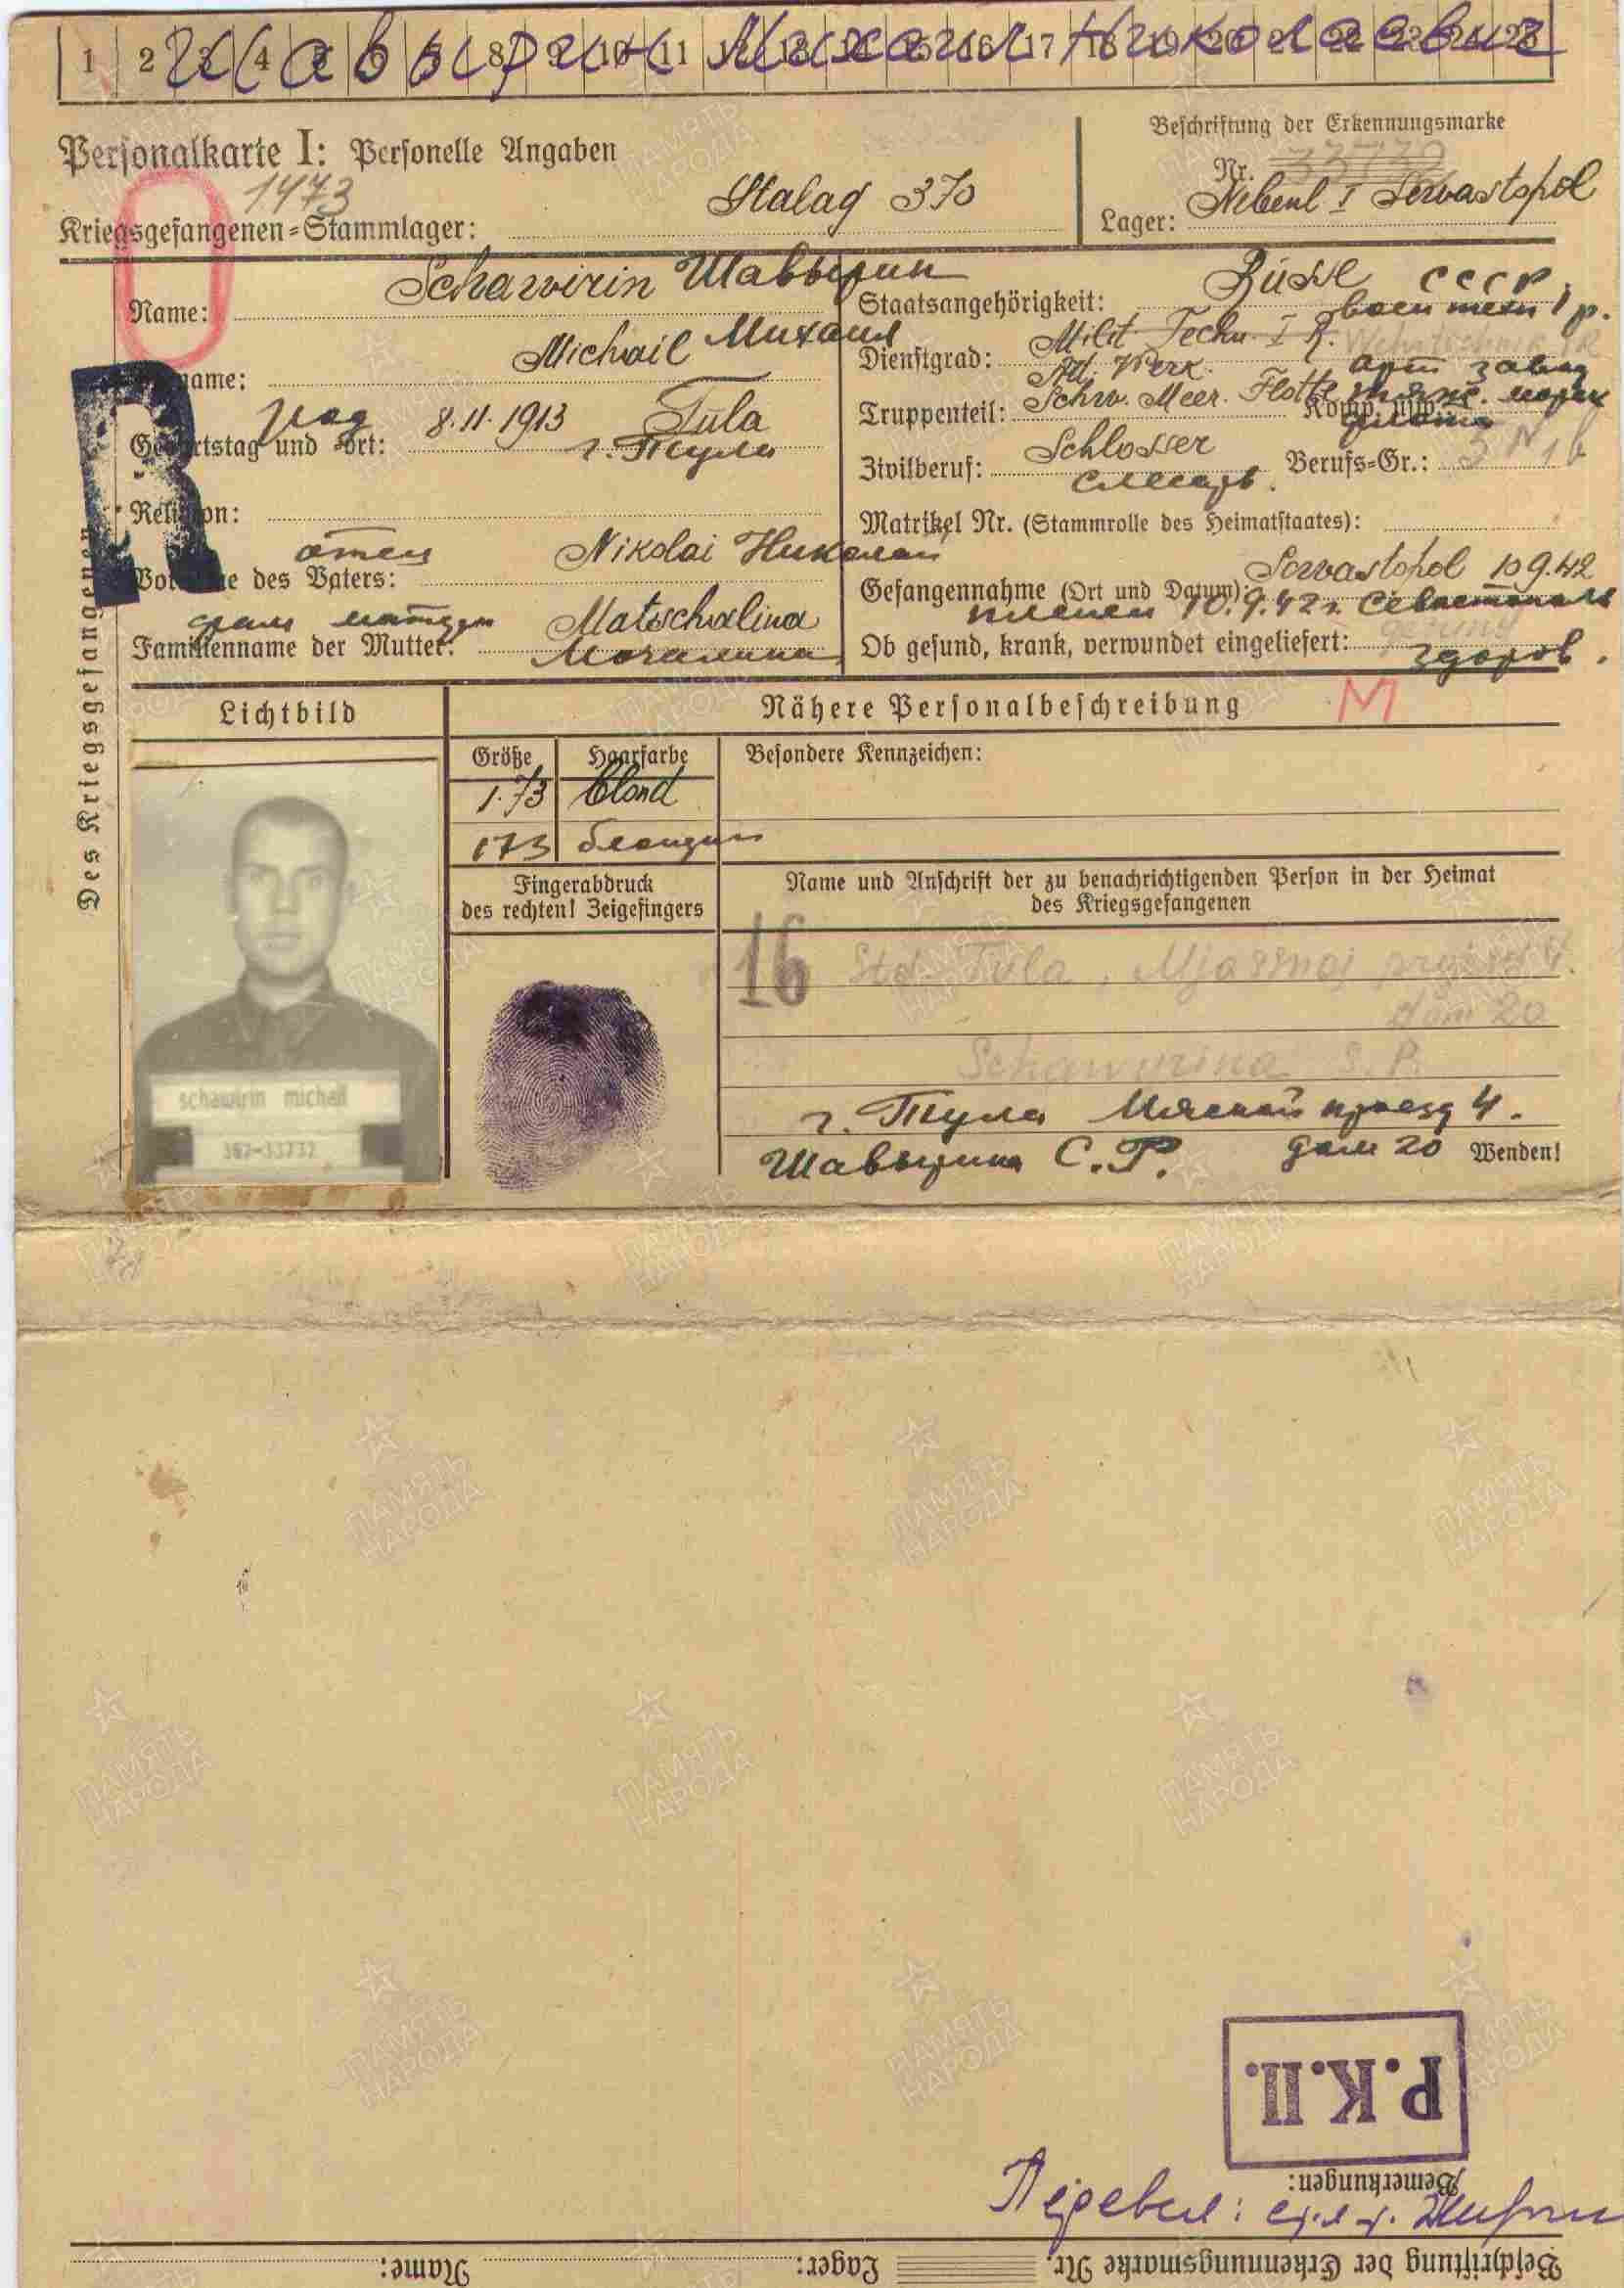 1 2 3 4 8 9 10 11 16 17
Шавырин Михаил Николаевич
Personalkarte I: Personelle Angaben
Beschriftung der Erkennungsmarke
1473
Nr.
Kriegsgefangenen=Stammlager: Stalag 370
Lager: Nebenl I Sewastopol
Name: Schawirin Шавырин
Staatsangehörigkeit: Russe СССР.
Michail Михаил
Dienstgrad: Milit. Techn. I R. воен техн 1 р.
Truppenteil: Art. Werk. Schw. Meer. Flotte арт завод
Komp. usw.:
Geburtstag und =ort: 8.11.1913 Tula
г. Тула
Zivilberuf: Schlosser Berufs=Gr.:
слесарь.
Religion:
Matrikel Nr. (Stammrolle des Heimatstaates):
отец
Vorname des Vaters: Nikolai Николай
Gefangennahme (Ort und Datum): Sewastopol 10 9.42
пленен 10.9.42г. Севастополь
Familienname der Mutter: Matschalina
Мочалина
Ob gesund, krank, verwundet eingeliefert: здоров.
Des Kriegsgefangenen
R
Lichtbild
Nähere Personalbeschreibung
M
Größe Haarfarbe Besondere Kennzeichen:
1.73 blond
173 блондин
Fingerabdruck
des rechten! Zeigefingers
Name und Anschrift der zu benachrichtigenden Person in der Heimat
des Kriegsgefangenen
16 Std. Tula, Mjassnoj projesd 4.
dom 20
Schawyrina S. P.
г. Тула Мясной проезд 4.
Шавырина С. Р. дом 20 Wenden!
schawirin michail
367-33737
ПАМЯТЬ НАРОДА
P.K.II.
Bemerkungen:
Перевел:
Beschriftung der Erkennungsmarke Nr. Lager: Name: